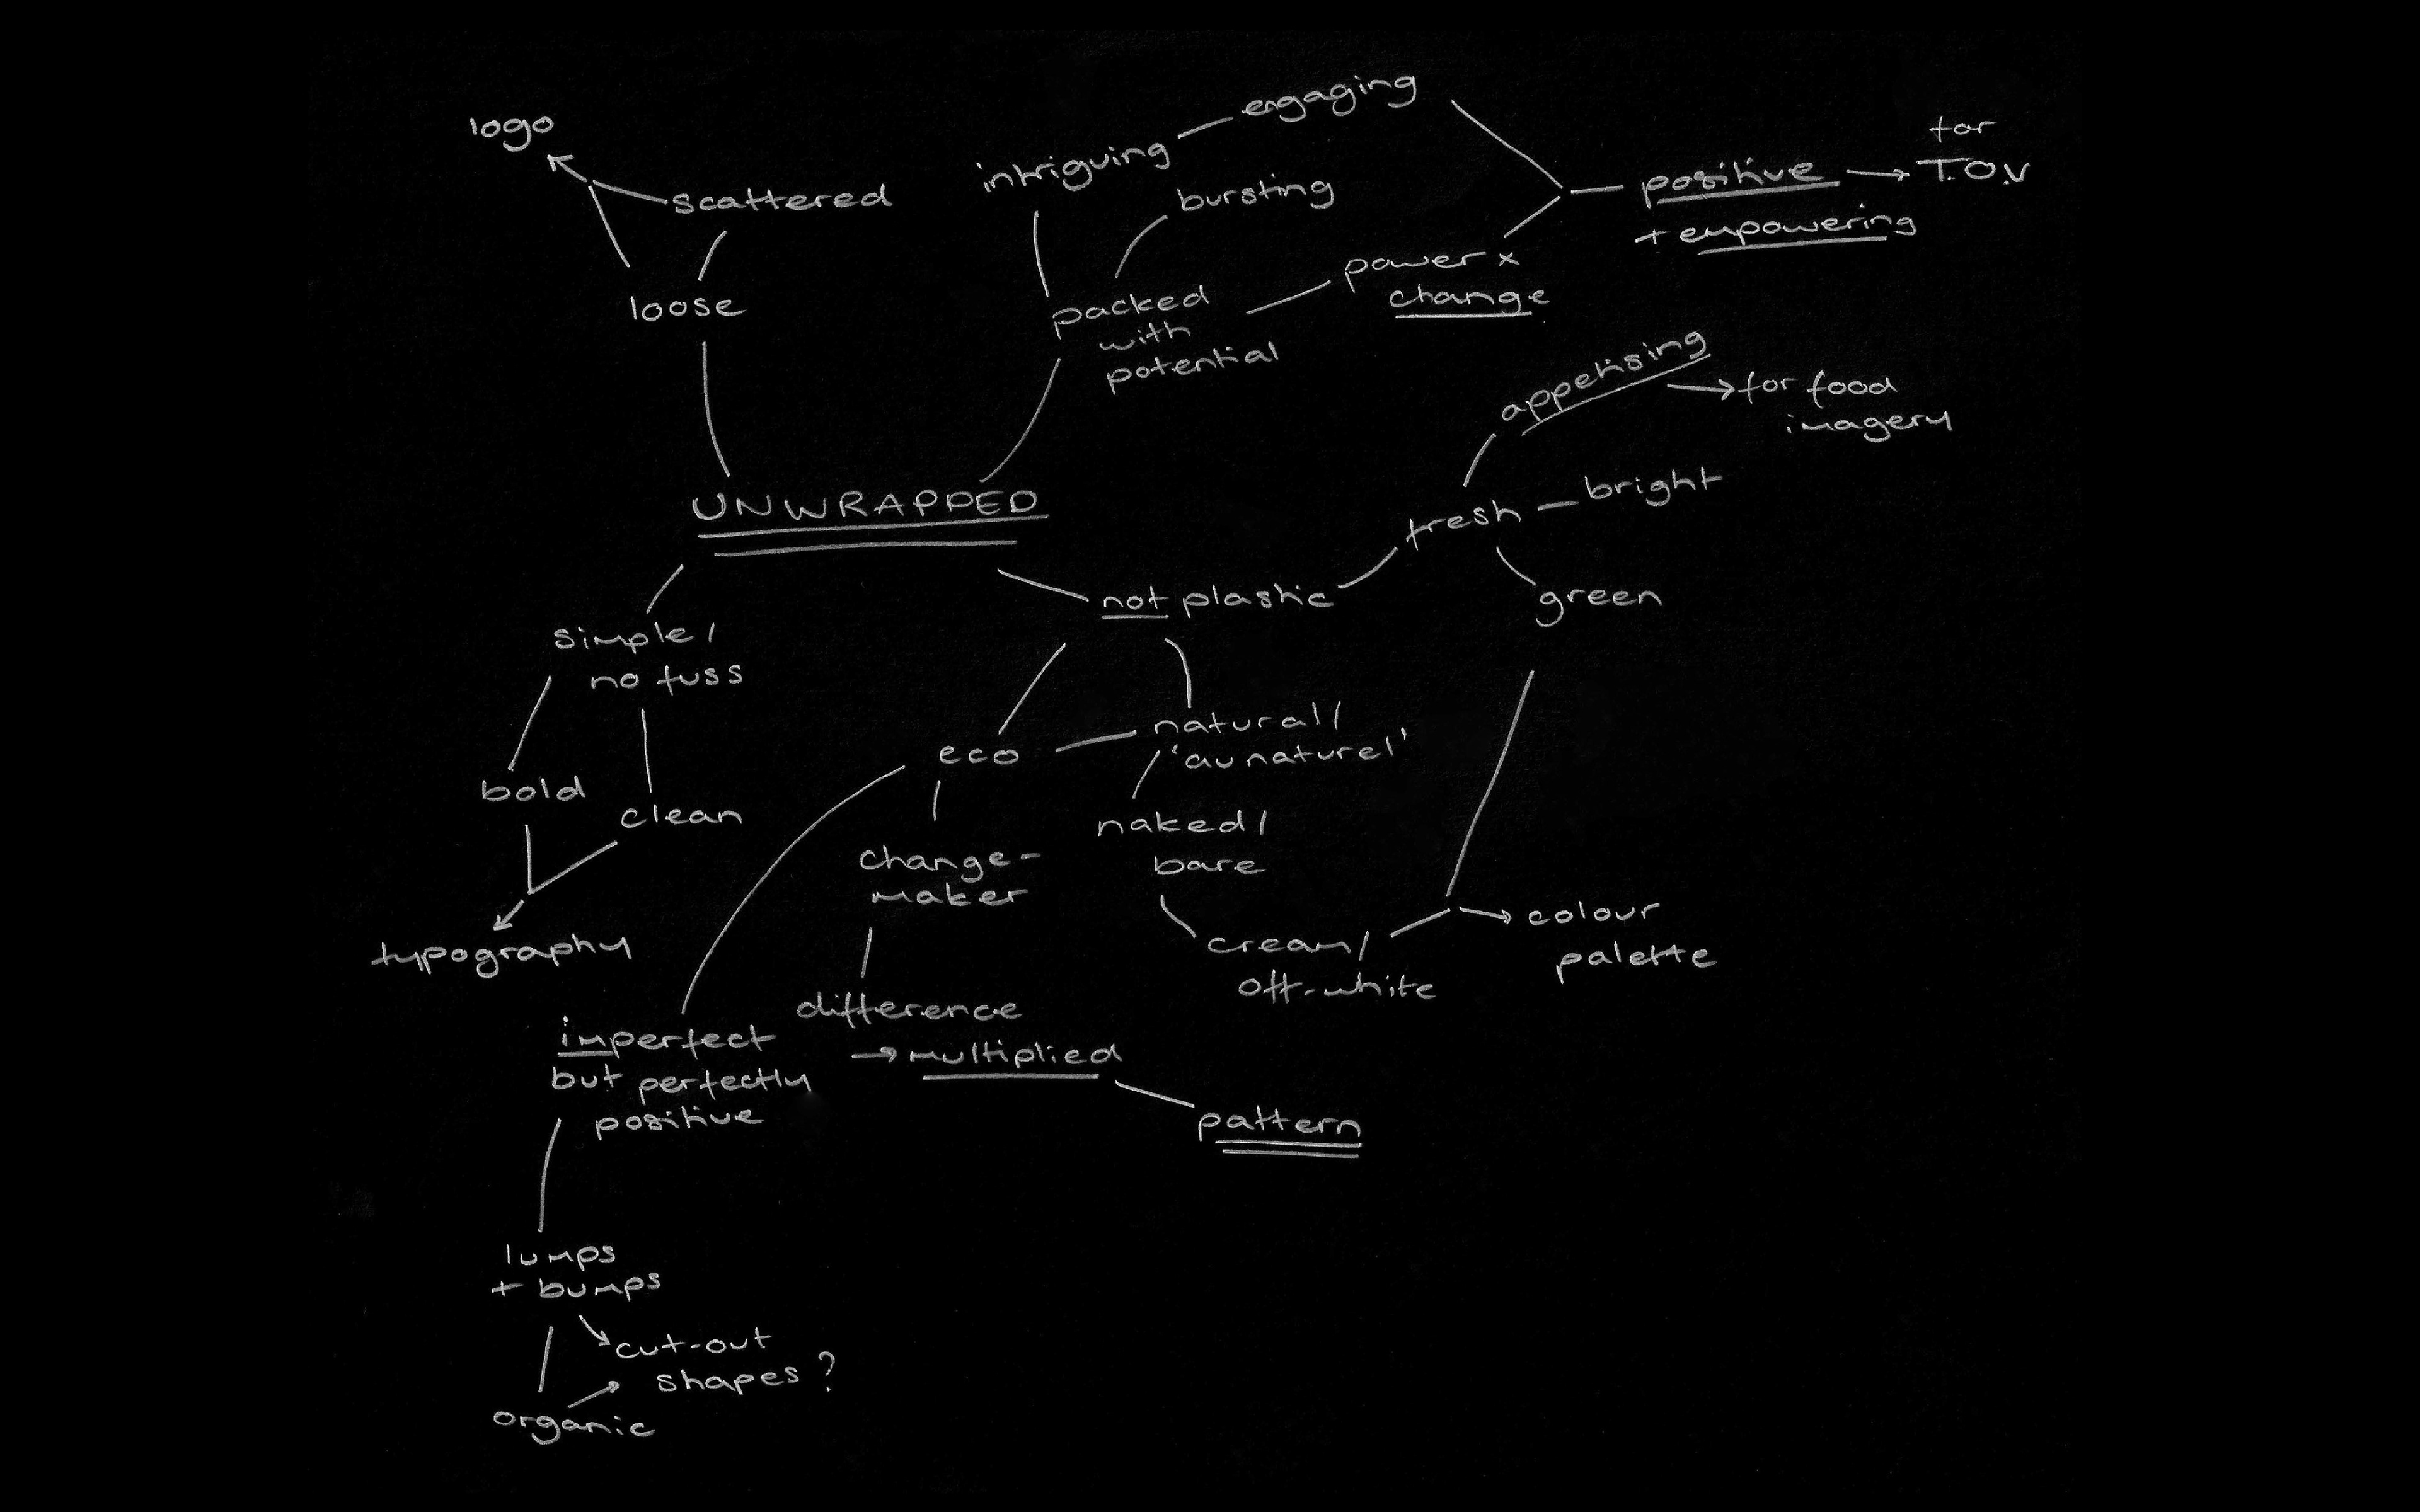 logo
scattered
loose
intriguing
engaging
bursting
packed
with
potential
power x
change
positive
+ empowering
for
T.O.V
appetising
for food
imagery
fresh
bright
green
UNWRAPPED
not plastic
simple/
no fuss
bold
clean
typography
eco
natural/
'au naturel'
naked/
bare
cream/
off-white
colour
palette
change-
maker
difference
→ multiplied
pattern
imperfect
but perfectly
positive
lumps
+ bumps
cut-out
shapes?
organic